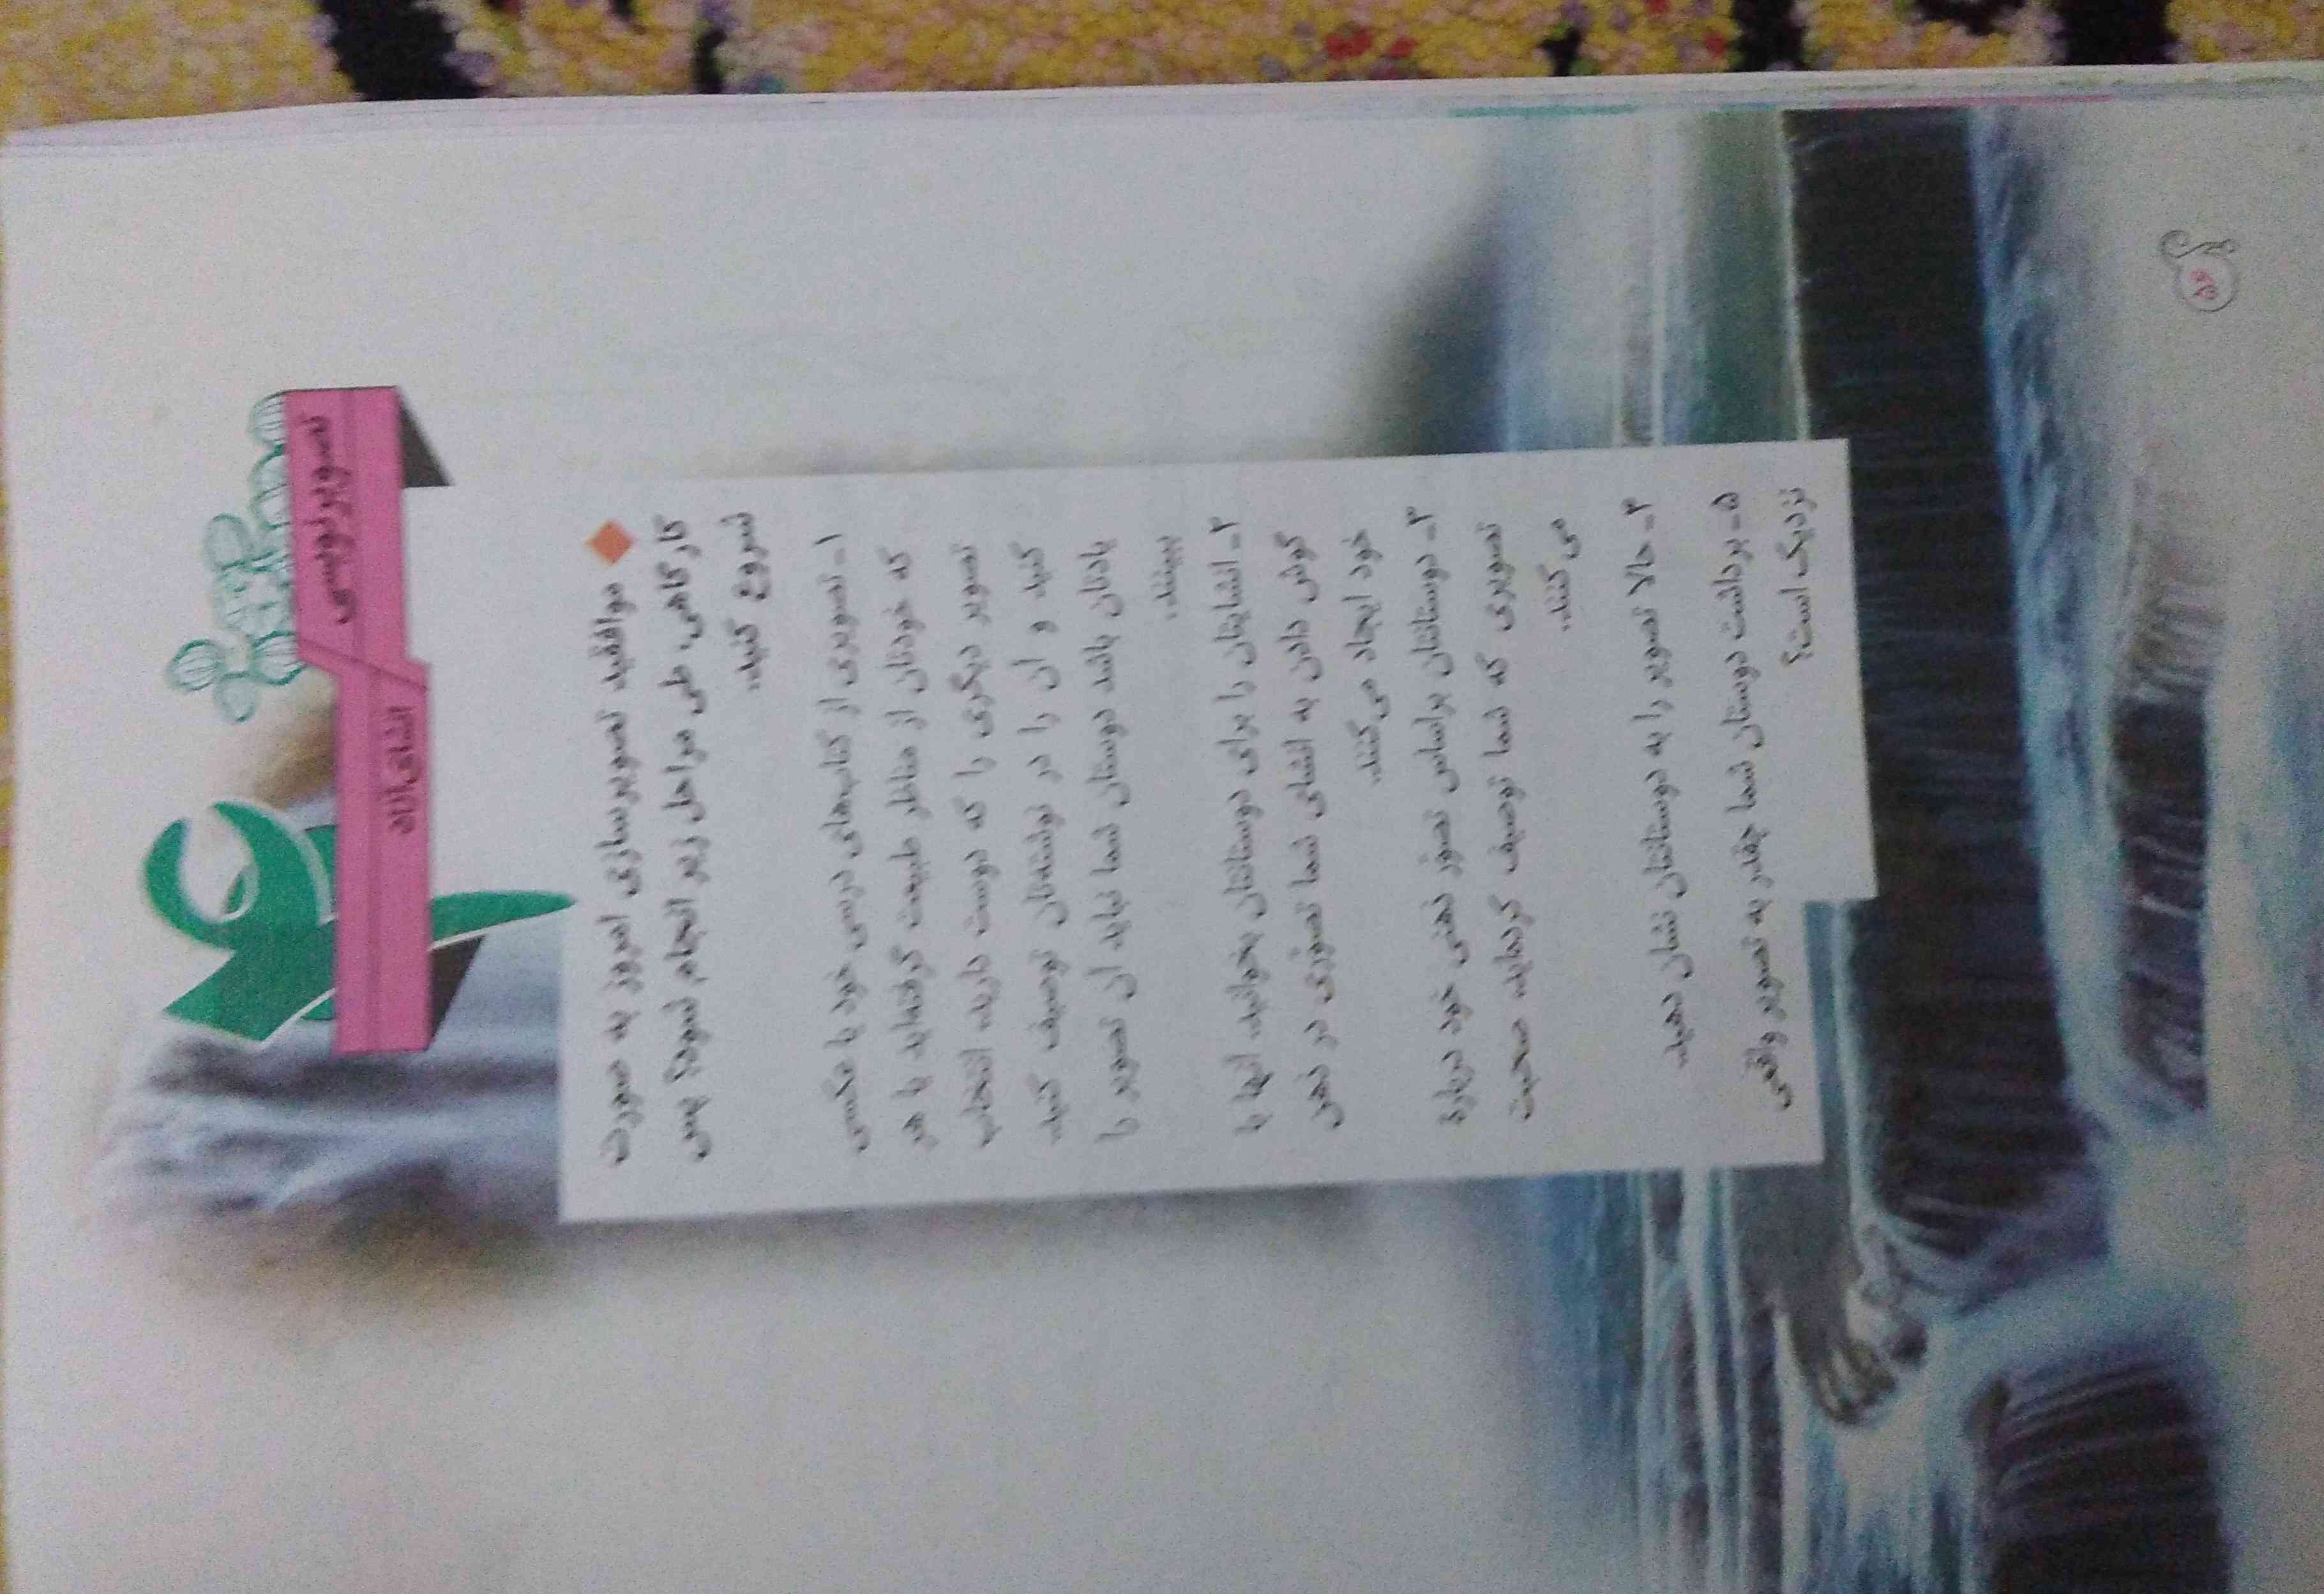 تصویرنویسی
انشای آزاد
موافقید تصویرسازی امروز به صورت
کارگاهی، طی مراحل زیر انجام شود؟ پس
شروع کنید.
۱ـ تصویری از کتاب‌های درسی خود یا عکسی
که خودتان از مناظر طبیعت گرفته‌اید یا هر
تصویر دیگری را که دوست دارید، انتخاب
کنید و آن را در نوشته‌تان توصیف کنید.
یادتان باشد دوستان شما نباید آن تصویر را
ببینند.
۲ـ انشایتان را برای دوستانتان بخوانید. آنها با
گوش دادن به انشای شما تصوّری در ذهن
خود ایجاد می‌کنند.
۳ـ دوستانتان براساس تصوّر ذهنی خود درباره‌ٔ
تصویری که شما توصیف کرده‌اید، صحبت
می‌کنند.
۴ـ حالا تصویر را به دوستانتان نشان دهید.
۵ـ برداشت دوستان شما چقدر به تصویر واقعی
نزدیک است؟